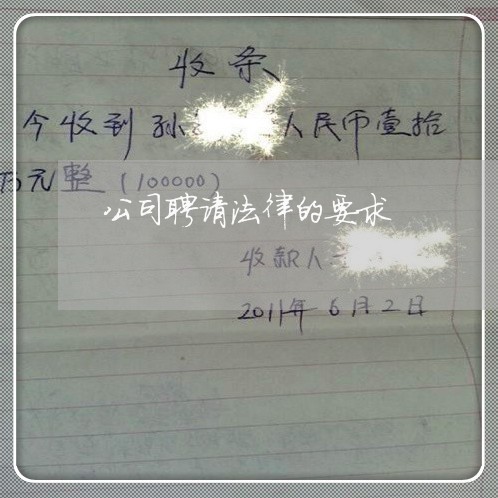 收条
今收到孙人民币壹拾
万元整（100000）
公司聘请法律的要求
收款人
2011年6月2日